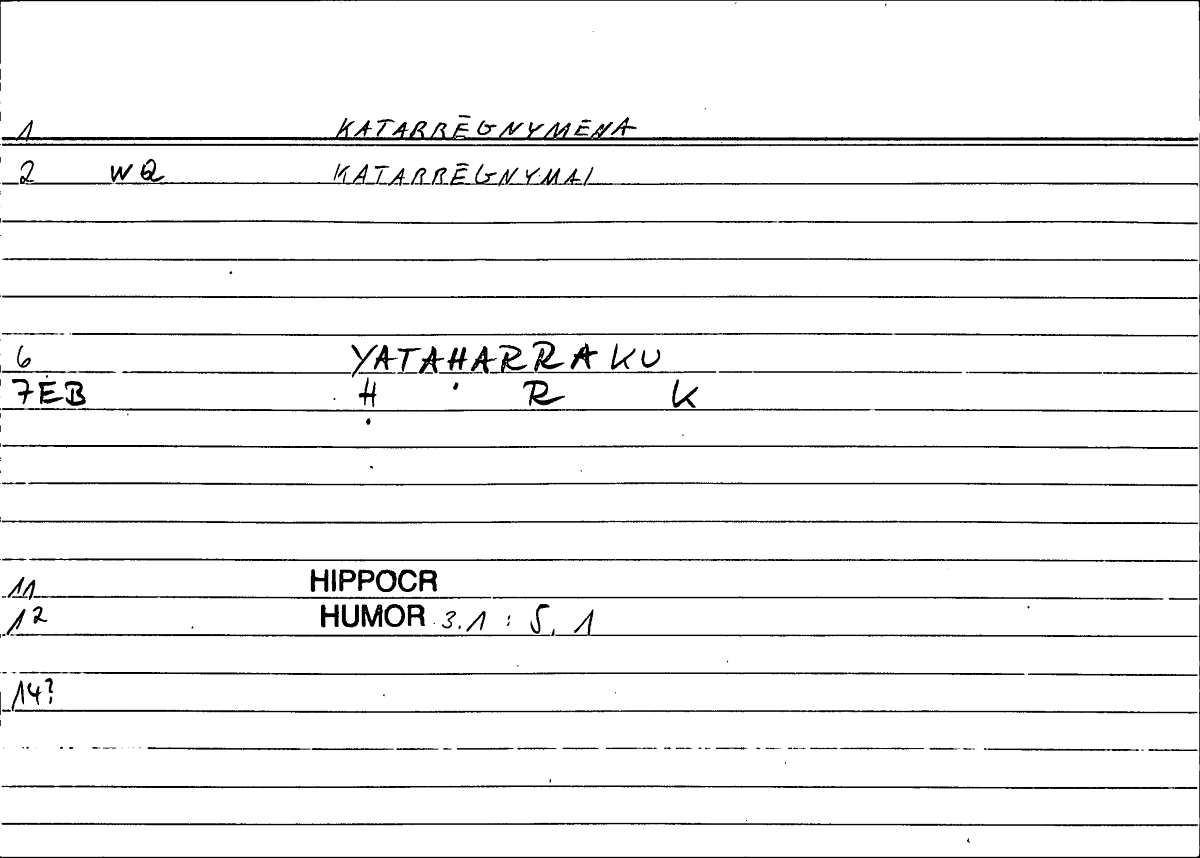 1 KATARRĒGNYMENA
2 WQ KATARRĒGNYMAI
6 YATAḤARRAKU
7EB Ḥ R K
11 HIPPOCR
12 HUMOR 3.1 : 5, 1
14?